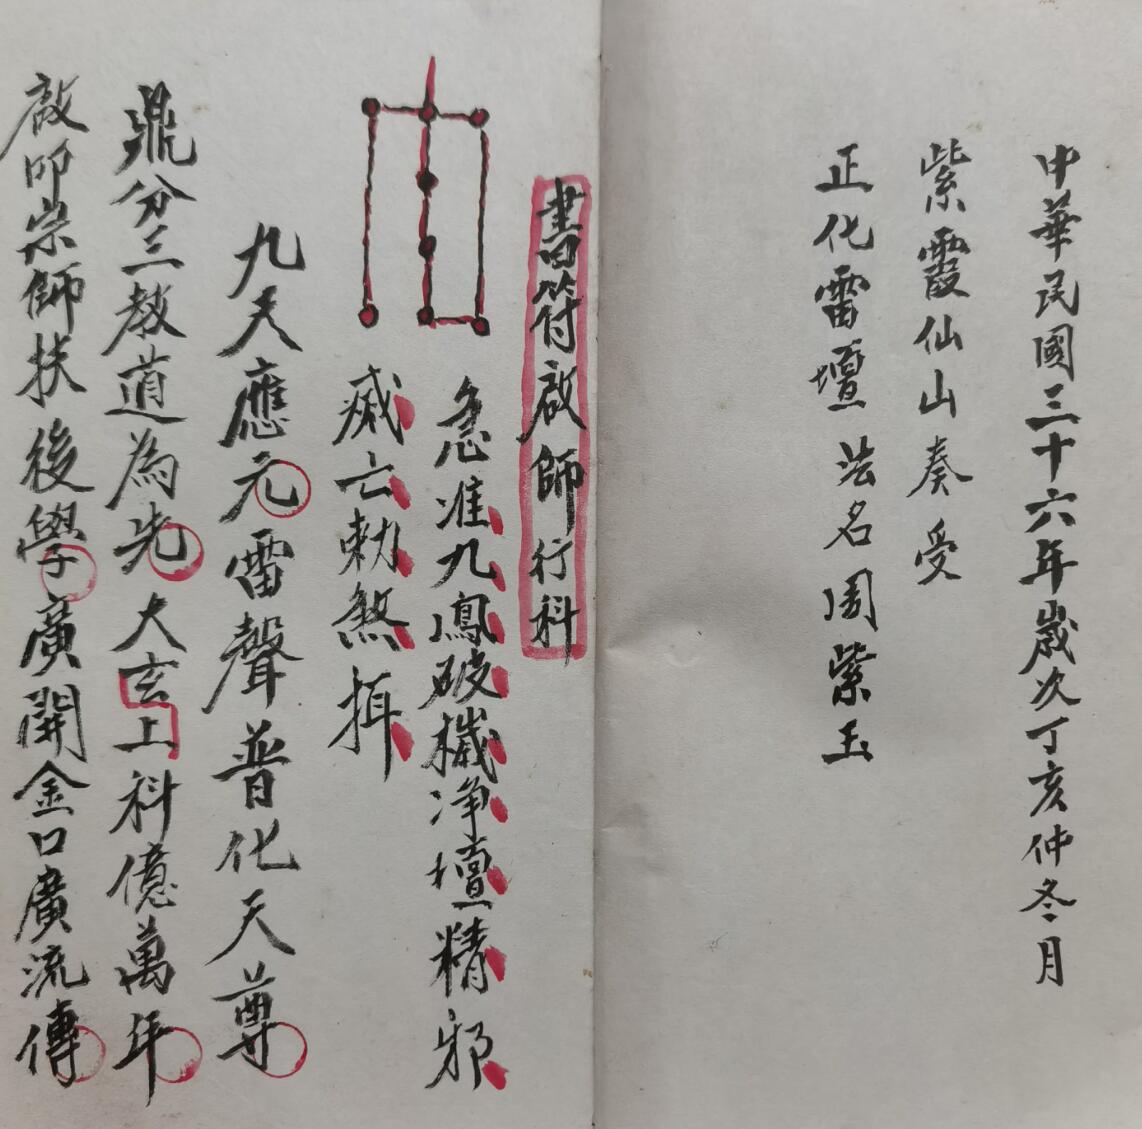 中華民國三十六年歲次丁亥仲冬月
紫霞仙山奏受
正化雷壇法名周紫玉
書符啟師行科
急准九鳳破穢净壇精邪
亡勅煞
九天應元雷聲普化天尊
鼎分三教道為先大玄上科億萬年
啟叩宗師扶後學廣開金口廣流傳